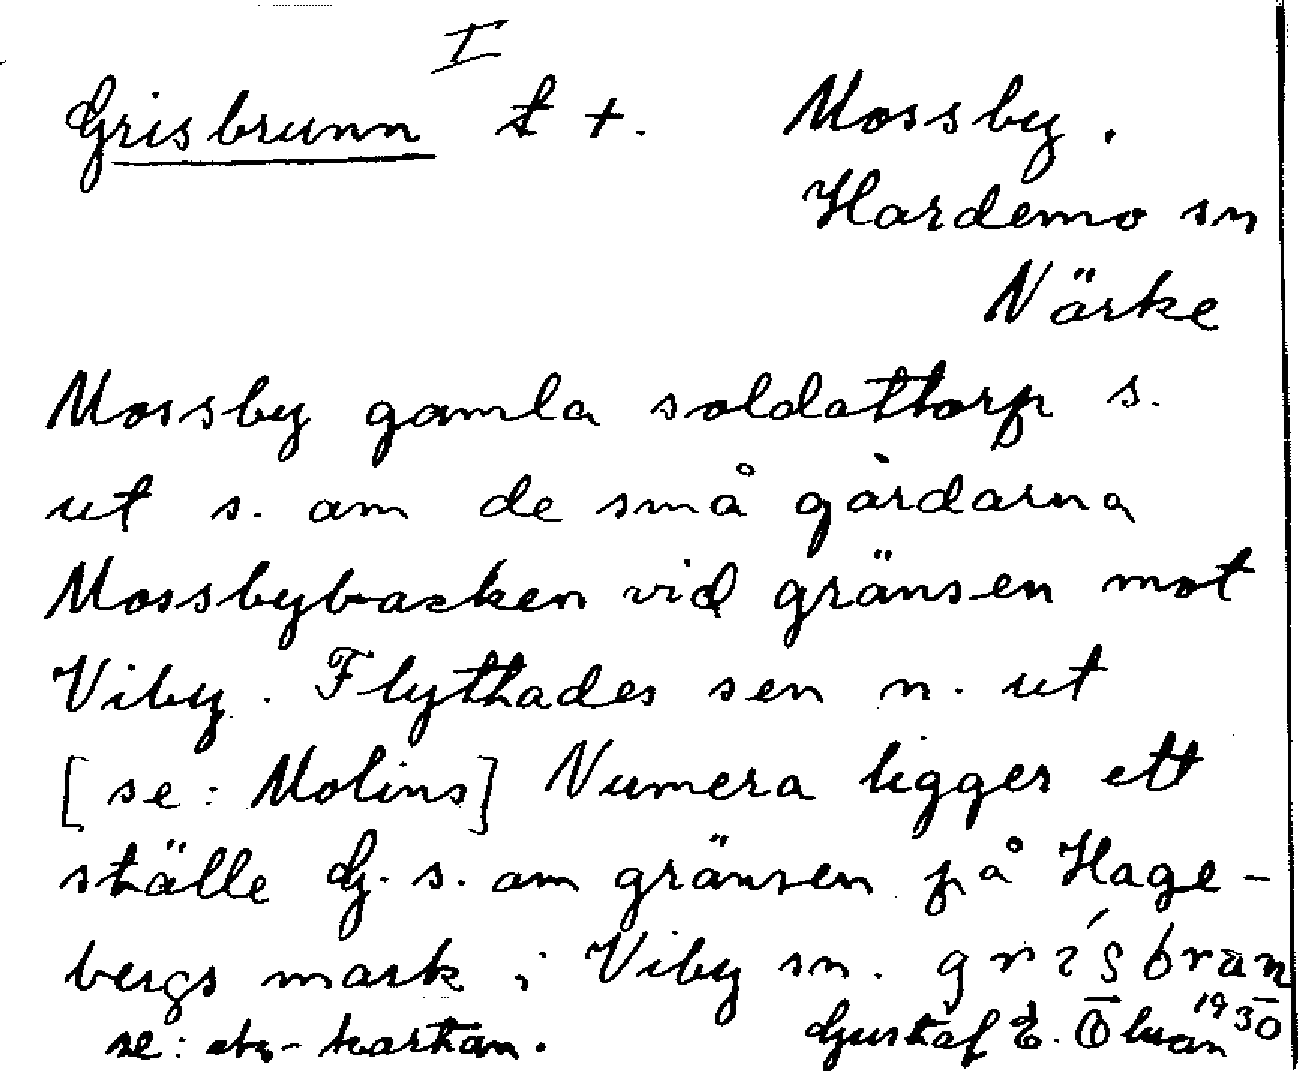 I
Grisbrunn t +. Mossby.
Hardemo sn
Närke
Mossby gamla soldattorp s.
ut s. om de små gårdarna
Mossbybacken vid gränsen mot
Viby. Flyttades sen n. ut
[se: Molins] Numera ligger ett
ställe G. s. om gränsen på Hage-
bergs mark i Viby sn.
se: -kartan. Gustaf E. 1930